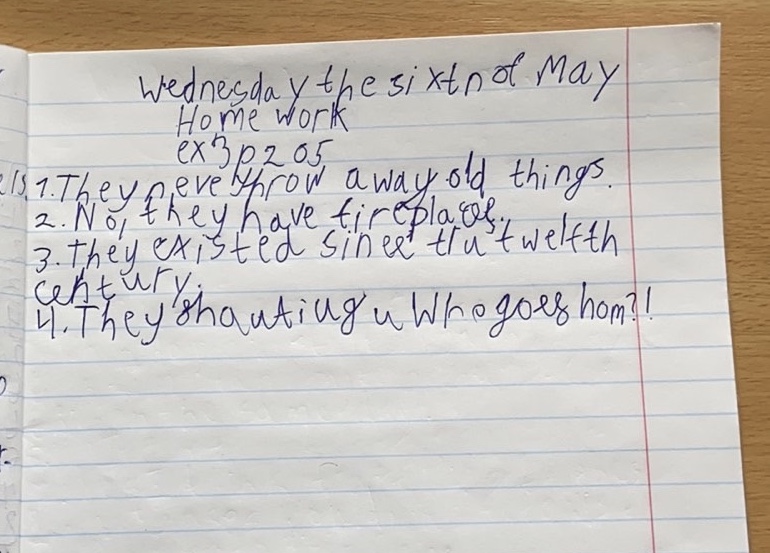 Wednesday the sixtn of May
Home work
ex3p205
1. They never throw away old things.
2. No, they have fireplaces.
3. They existed since tha twelfth
century.
4. They shauting u Who goes hom?!